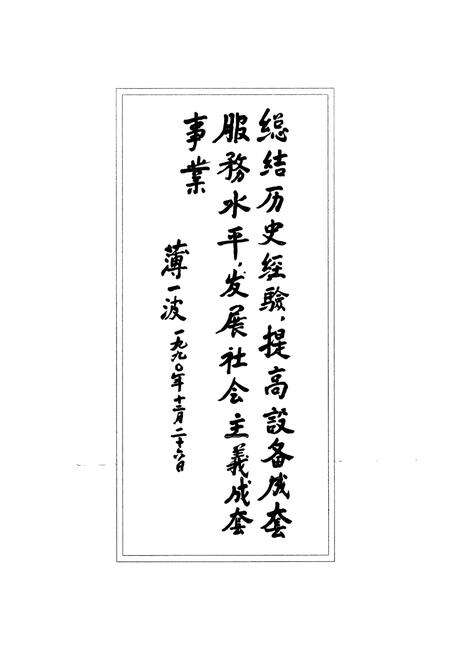 总结历史经驗,提高設备成套
服務水平,发展社会主義成套
事業
薄一波 一九九〇年十二月二十六日